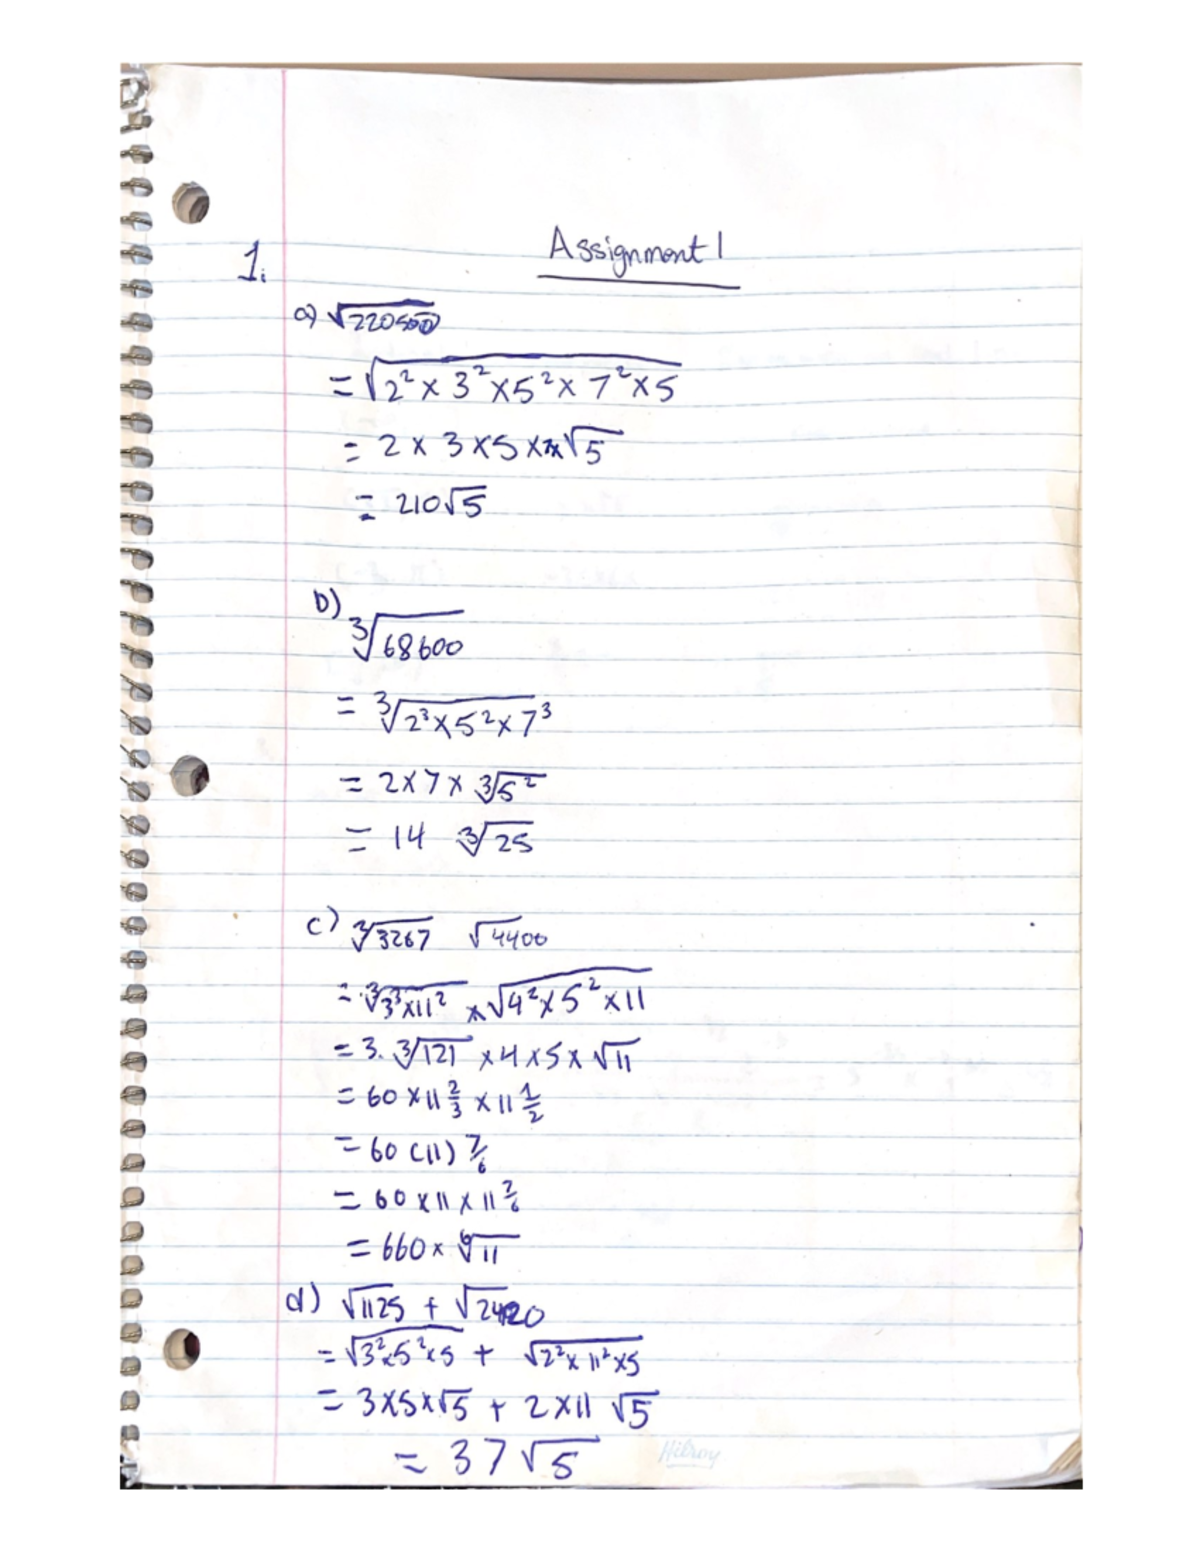 Assignment 1
1.
a) √220500
= √2² × 3² × 5² × 7² × 5
= 2 × 3 × 5 × 7 × √5
= 210√5
b)
³√68600
= ³√2³ × 5² × 7³
= 2 × 7 × ³√5²
= 14 ³√25
c) ³√3267 √4400
= ³√3³ × 11² × √4² × 5² × 11
= 3. ³√121 × 4 × 5 × √11
= 60 × 11 2/3 × 11 1/2
= 60 (11) 7/6
= 60 × 11 × 11
= 660 × ⁶√11
d) √1125 + √2420
= √3² × 5² × 5 + √2² × 11² × 5
= 3 × 5 × √5 + 2 × 11 √5
= 37√5
Hilroy